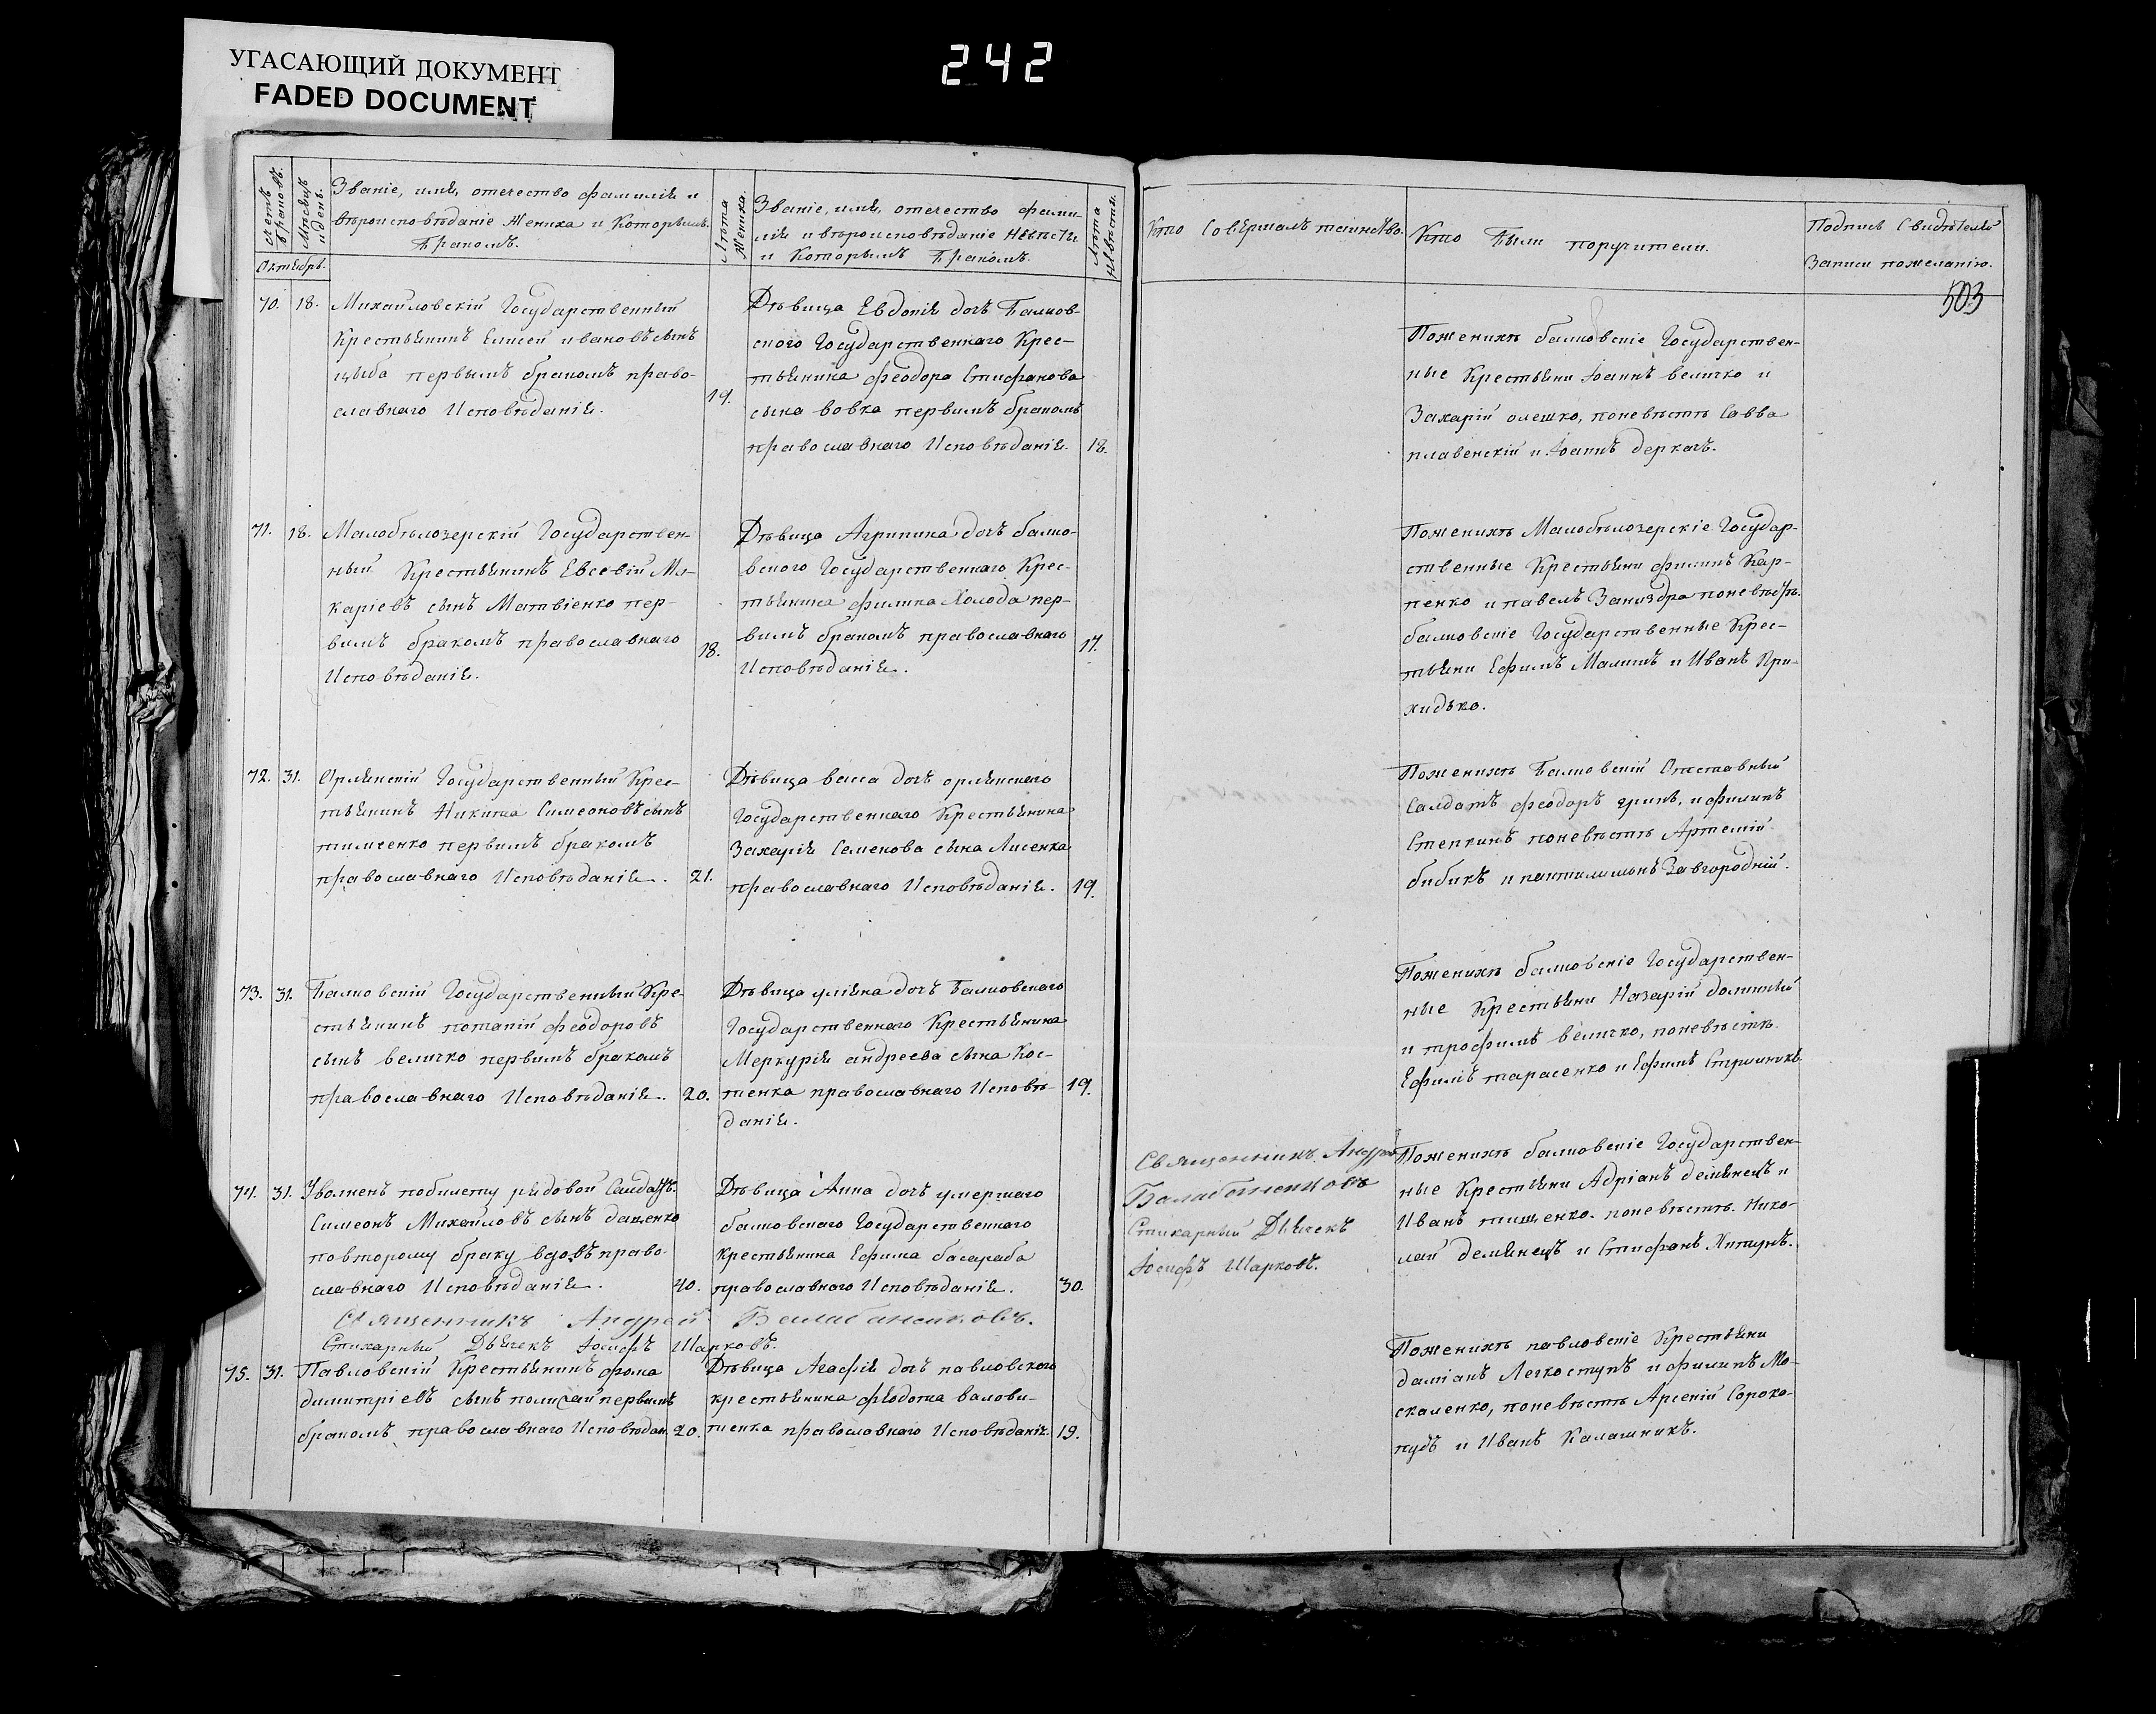 УГАСАЮЩИЙ ДОКУМЕНТ
FADED DOCUMENT
242
Счетъ браковъ.
Мѣсяцъ и день.
Званіе, имя, отечество фамилія и
вѣроисповѣданіе Жениха и Которымъ
бракомъ.
Лѣта Жениха.
Званіе, имя, отечество фами-
лія и вѣроисповѣданіе Невѣсты
и Которымъ бракомъ.
Лѣта Невѣсты.
Кто Совершалъ таинство.
Кто были поручители.
Подпись Свидѣтелей
Записи пожеланію.
Октябрь.
503
70. 18. Михайловскій Государственный
Крестьянинъ Елисей ивановъ сынъ
цыба первымъ бракомъ право-
славнаго Исповѣданія.
19.
Дѣвица Евдокія дочь Балков-
ского Государственнаго Крес-
тьянина феодора Стифанова
сына вовка первымъ бракомъ
православнаго Исповѣданія.
18.
Поженихѣ балковскіе Государствен-
ные Крестьяни Іоаннъ величко и
Захарій олешко, поневѣстѣ Савва
плавенскій и Іоаннъ деркачъ.
71. 18. Малобѣлозерскій Государствен-
ный Крестьянинъ Евсевій Ма-
каріевъ сынъ Матвіенко пер-
вимъ бракомъ православнаго
Исповѣданія.
18.
Дѣвица Агрипина дочь балко-
вского Государственнаго Крес-
тьянина филипа Холода пер-
вимъ бракомъ православнаго
Исповѣданія.
17.
Поженихѣ Малобѣлозерскіе Государ-
ственные Крестьяни филипъ Кар-
пенко и павелъ Заниздра поневѣстѣ.
балковскіе Государственные Крес-
тьяни Ефимъ Малишъ и Иванъ При-
хидько.
72. 31. Орлянскій Государственный Крес-
тьянинъ Никита Симеоновъ сынъ
тимченко первимъ бракомъ
православнаго Исповѣданія.
21.
Дѣвица васса дочь орлянского
Государственнаго Крестьянина
Захарія Семенова сына Лисенка
православнаго Исповѣданія.
19.
Поженихѣ Балковскій Отставный
Салдатъ феодоръ гринь, и филипъ
Степкинъ поневѣстѣ Артемій
бибикъ и пантилимонъ Завгородній.
73. 31. Балковскій Государственный Кре-
стьянинъ потапій феодоровъ
сынъ величко первимъ бракомъ
православнаго Исповѣданія.
20.
Дѣвица уліяна дочь Балковскаго
Государственнаго Крестьянина
Меркурія андреева сына Кос-
тенка православнаго Исповѣ-
данія.
19.
Поженихѣ балковскіе Государствен-
ные Крестьяни Назарій долинный
и трофимъ величко, поневѣстѣ
Ефимъ тарасенко и Ефимъ Стрилникъ
74. 31. Уволненъ побилету рядовой Салдатъ.
Симеонъ Михайловъ сынъ даценко
повторому браку вдовъ право-
славнаго Исповѣданія.
40.
Дѣвица Анна дочь умершаго
балковскаго Государственнаго
крестьянина Ефима басараба
православнаго Исповѣданія.
30.
Священникъ Андрей
Балабаненковъ
Стихарный Дьячекъ
Іосифъ Шарковъ.
Поженихѣ балковскіе Государствен-
ные Крестьяни Адріанъ демянецъ и
Иванъ тищенко. поневѣстѣ. Нико-
лай демянецъ и Стифанъ Хитунъ.
Священникъ Андрей Балабаненковъ.
Стихарный Дьячекъ Іосифъ Шарковъ.
75. 31. Павловскій Крестьянинъ фома
димитріевъ сынъ полицай первымъ
бракомъ православнаго Исповѣдан.
20.
Дѣвица Агафія дочь павловского
крестьянина Федота волови-
тенка православнаго Исповѣданія.
19.
Поженихѣ павловскіе Крестьяни
даміанъ Легкоступъ и филипъ Мо-
скаленко, поневѣстѣ Арсеній Сороко-
пудъ и Иванъ Калашникъ.